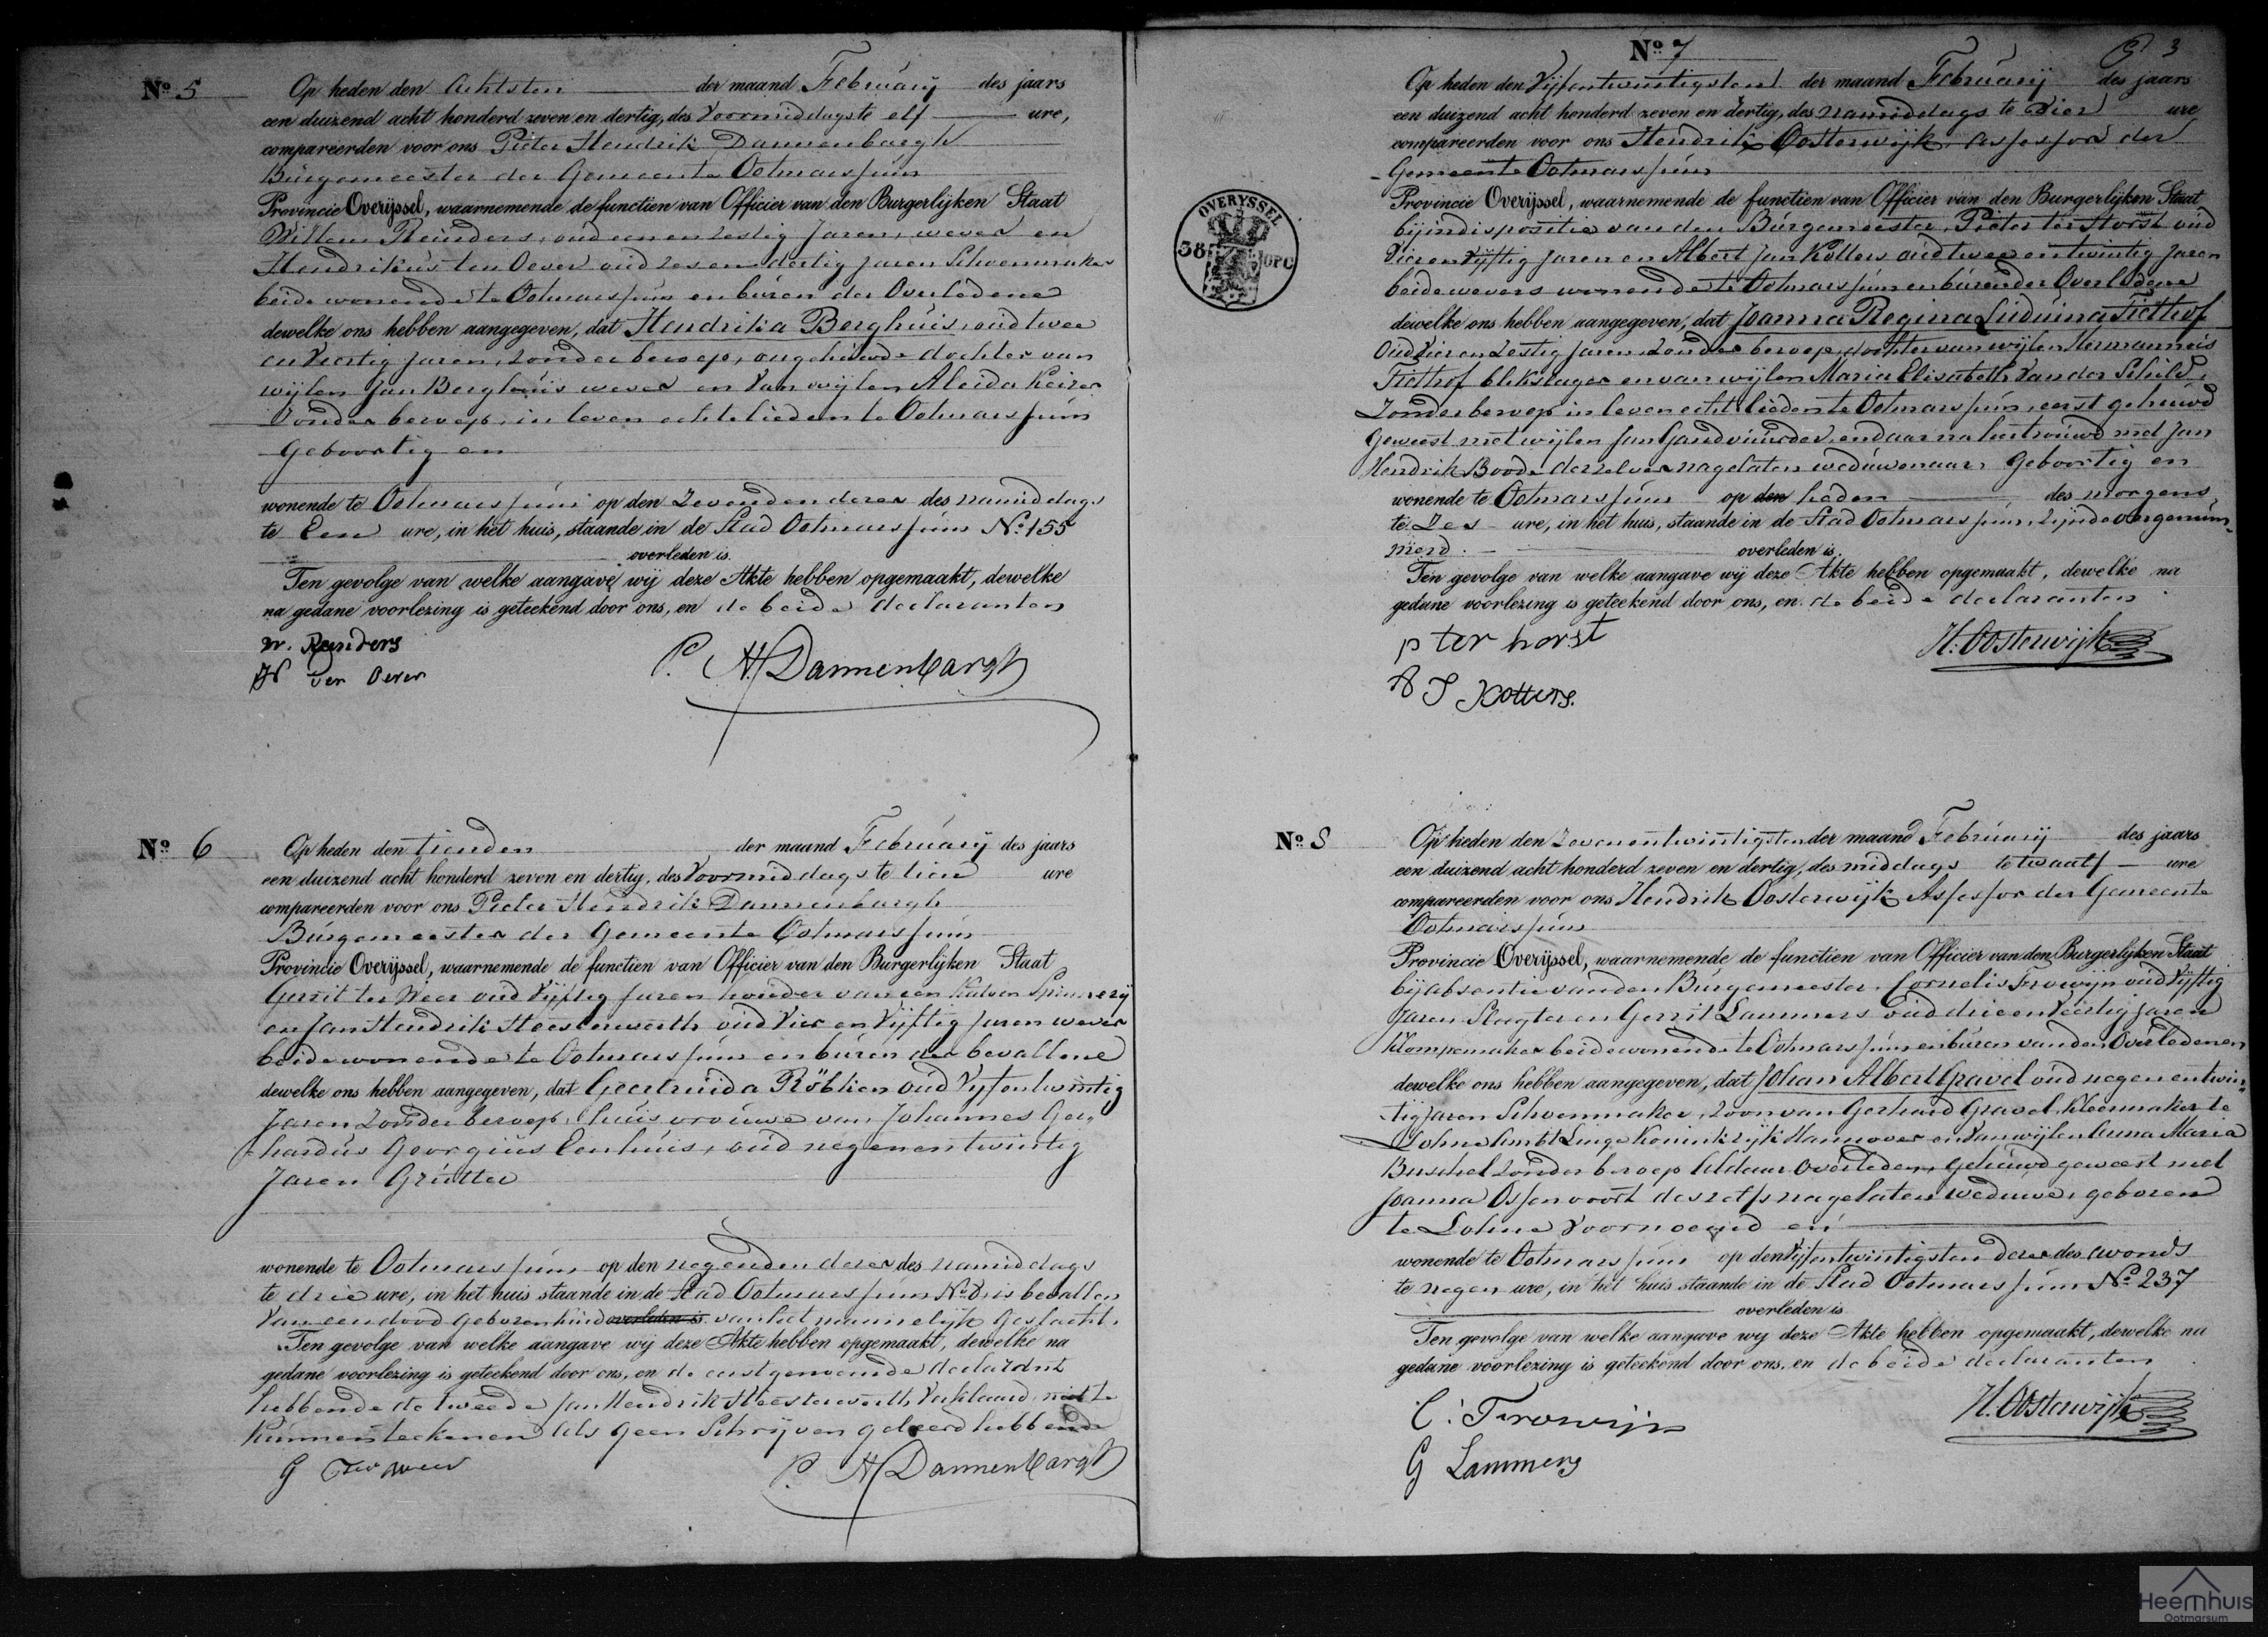 No. 5
Op heden den Achtsten der maand February des jaars
een duizend acht honderd zeven en dertig, des Voormiddags te elf ure,
compareerden voor ons Pieter Hendrik Dannenbargh
Burgemeester der Gemeente Ootmarssum
Provincie Overijssel, waarnemende de functien van Officier van den Burgerlijken Staat
Willem Reinders, oud een en zestig Jaren, wever en
Hendrikus ten Oever oud zes en dertig jaren Schoenmaker
beide wonende te Ootmarssum en buren der Overledene
dewelke ons hebben aangegeven, dat Hendrika Berghuis, oud twee
en Veertig jaren, zonder beroep, ongehuwde dochter van
wijlen Jan Berghuis wever en Van wijlen Aleida Keizer
Zonder beroep, in leven echtelieden te Ootmarssum
Geboortig en
wonende te Ootmarssum op den Zevenden dezer des namiddags
te Een ure, in het huis, staande in de Stad Ootmarssum No. 155
overleden is.
Ten gevolge van welke aangave wij deze Akte hebben opgemaakt, dewelke
na gedane voorlezing is geteekend door ons, en de beide declaranten
W. Reinders
H ten Oever
P. H. Dannenbargh
No. 6
Op heden den tienden der maand February des jaars
een duizend acht honderd zeven en dertig, des Voormiddags te tien ure
compareerden voor ons Pieter Hendrik Dannenbargh
Burgemeester der Gemeente Ootmarssum
Provincie Overijssel, waarnemende de functien van Officier van den Burgerlijken Staat
Gerrit ter Weer oud Vijftig Jaren houder van een Katoen Spinnerij
en Jan Hendrik Heesterwerth oud Vier en Vijftig jaren wever
beide wonende te Ootmarssum en buren der bevallene
dewelke ons hebben aangegeven, dat Geertruida Röbken oud Vyf en twintig
Jaren Zonder beroep, huisvrouwe van Johannes Ger
hardus Georgius Eenhuis, oud negen en twintig
Jaren Grutter
wonende te Ootmarssum op den negenden dezer des namiddags
te drie ure, in het huis staande in de Stad Ootmarssum No. is bevallen
Van een dood geboren kind overleden is van het mannelijk Geslacht.
Ten gevolge van welke aangave wij deze Akte hebben opgemaakt, dewelke na
gedane voorlezing is geteekend door ons, en de eerstgenoemde declarant
hebbende de tweede Jan Hendrik Heesterwerth Verklaard niet te
kunnen teekenen als geen Schrijven geleerd hebbende
G ter weer
P. H. Dannenbargh
No. 7
3
Op heden den Vijfentwintigsten der maand February des jaars
een duizend acht honderd zeven en dertig, des namiddags te Vier ure
compareerden voor ons Hendrik Oosterwijk Assessor der
Gemeente Ootmarssum
Provincie Overijssel, waarnemende de functien van Officier van den Burgerlijken Staat
bij indispositie van den Burgemeester, Pieter ter Horst oud
Vier en Vijftig Jaren en Albert Jan Kotters oud twee en twintig Jaren
beide wevers wonende te Ootmarssum en buren der Overledene
dewelke ons hebben aangegeven, dat Joanna Regina Luduina Tidthof
Oud Vier en Zestig Jaren Zonder beroep, dochter van wijlen Hermannus
Tidthof blikslager en van wijlen Maria Elisabeth Van der Schild,
Zonder beroep in leven echtelieden te Ootmarssum, eerst gehuwd
Geweest met wijlen Jan en daarna hertrouwd met Jan
Hendrik Boode derzelver nagelaten weduwenaar, Geboortig en
wonende te Ootmarssum op den heden des morgens
te Zes ure, in het huis, staande in de Stad Ootmarssum, zijnde ongenum-
merd.
overleden is.
Ten gevolge van welke aangave wij deze Akte hebben opgemaakt, dewelke na
gedane voorlezing is geteekend door ons, en de beide declaranten
p ter horst
H. Oosterwijk
A J Kotters.
OVERYSSEL
38
OPC
No. 8
Op heden den Zevenentwintigsten der maand February des jaars
een duizend acht honderd zeven en dertig, des middags te twaalf ure
compareerden voor ons Hendrik Oosterwijk Assessor der Gemeente
Ootmarssum
Provincie Overijssel, waarnemende de functien van Officier van den Burgerlijken Staat
bij absentie van den Burgemeester, Cornelis Frowijn oud Vyftig
Jaren Slagter en Gerrit Lammers oud drie en Veertig jaren
Klompemaker beide wonende te Ootmarssum en buren van den Overledenen
dewelke ons hebben aangegeven, dat Johan Albert Gravel oud negen en twin-
tig jaren Schoenmaker, Zoon van Gerhard Gravel Kleermaker te
Lohne Ambt Lingen Koninkrijk Hannover en Van wijlen Anna Maria
Buschel zonder beroep Aldaar Overleden, Gehuwd geweest met
Joanna Ossenvoort deszelfs nagelaten weduwe, geboren
te Lohne Voornoemd en
wonende te Ootmarssum op den Vijfentwintigsten dezer des avonds
te negen ure, in het huis staande in de Stad Ootmarssum No. 237
overleden is
Ten gevolge van welke aangave wy deze Akte hebben opgemaakt, dewelke na
gedane voorlezing is geteekend door ons, en de beide declaranten
C: Frowijn
H. Oosterwijk
G Lammers
Heemhuis
Ootmarsum